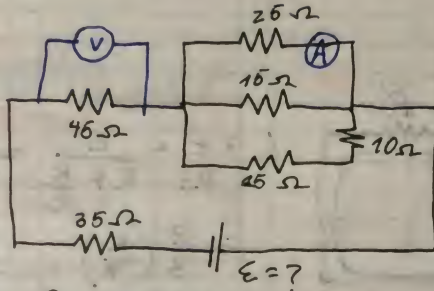 V
25Ω
A
15Ω
45Ω
10Ω
35Ω
ε=?